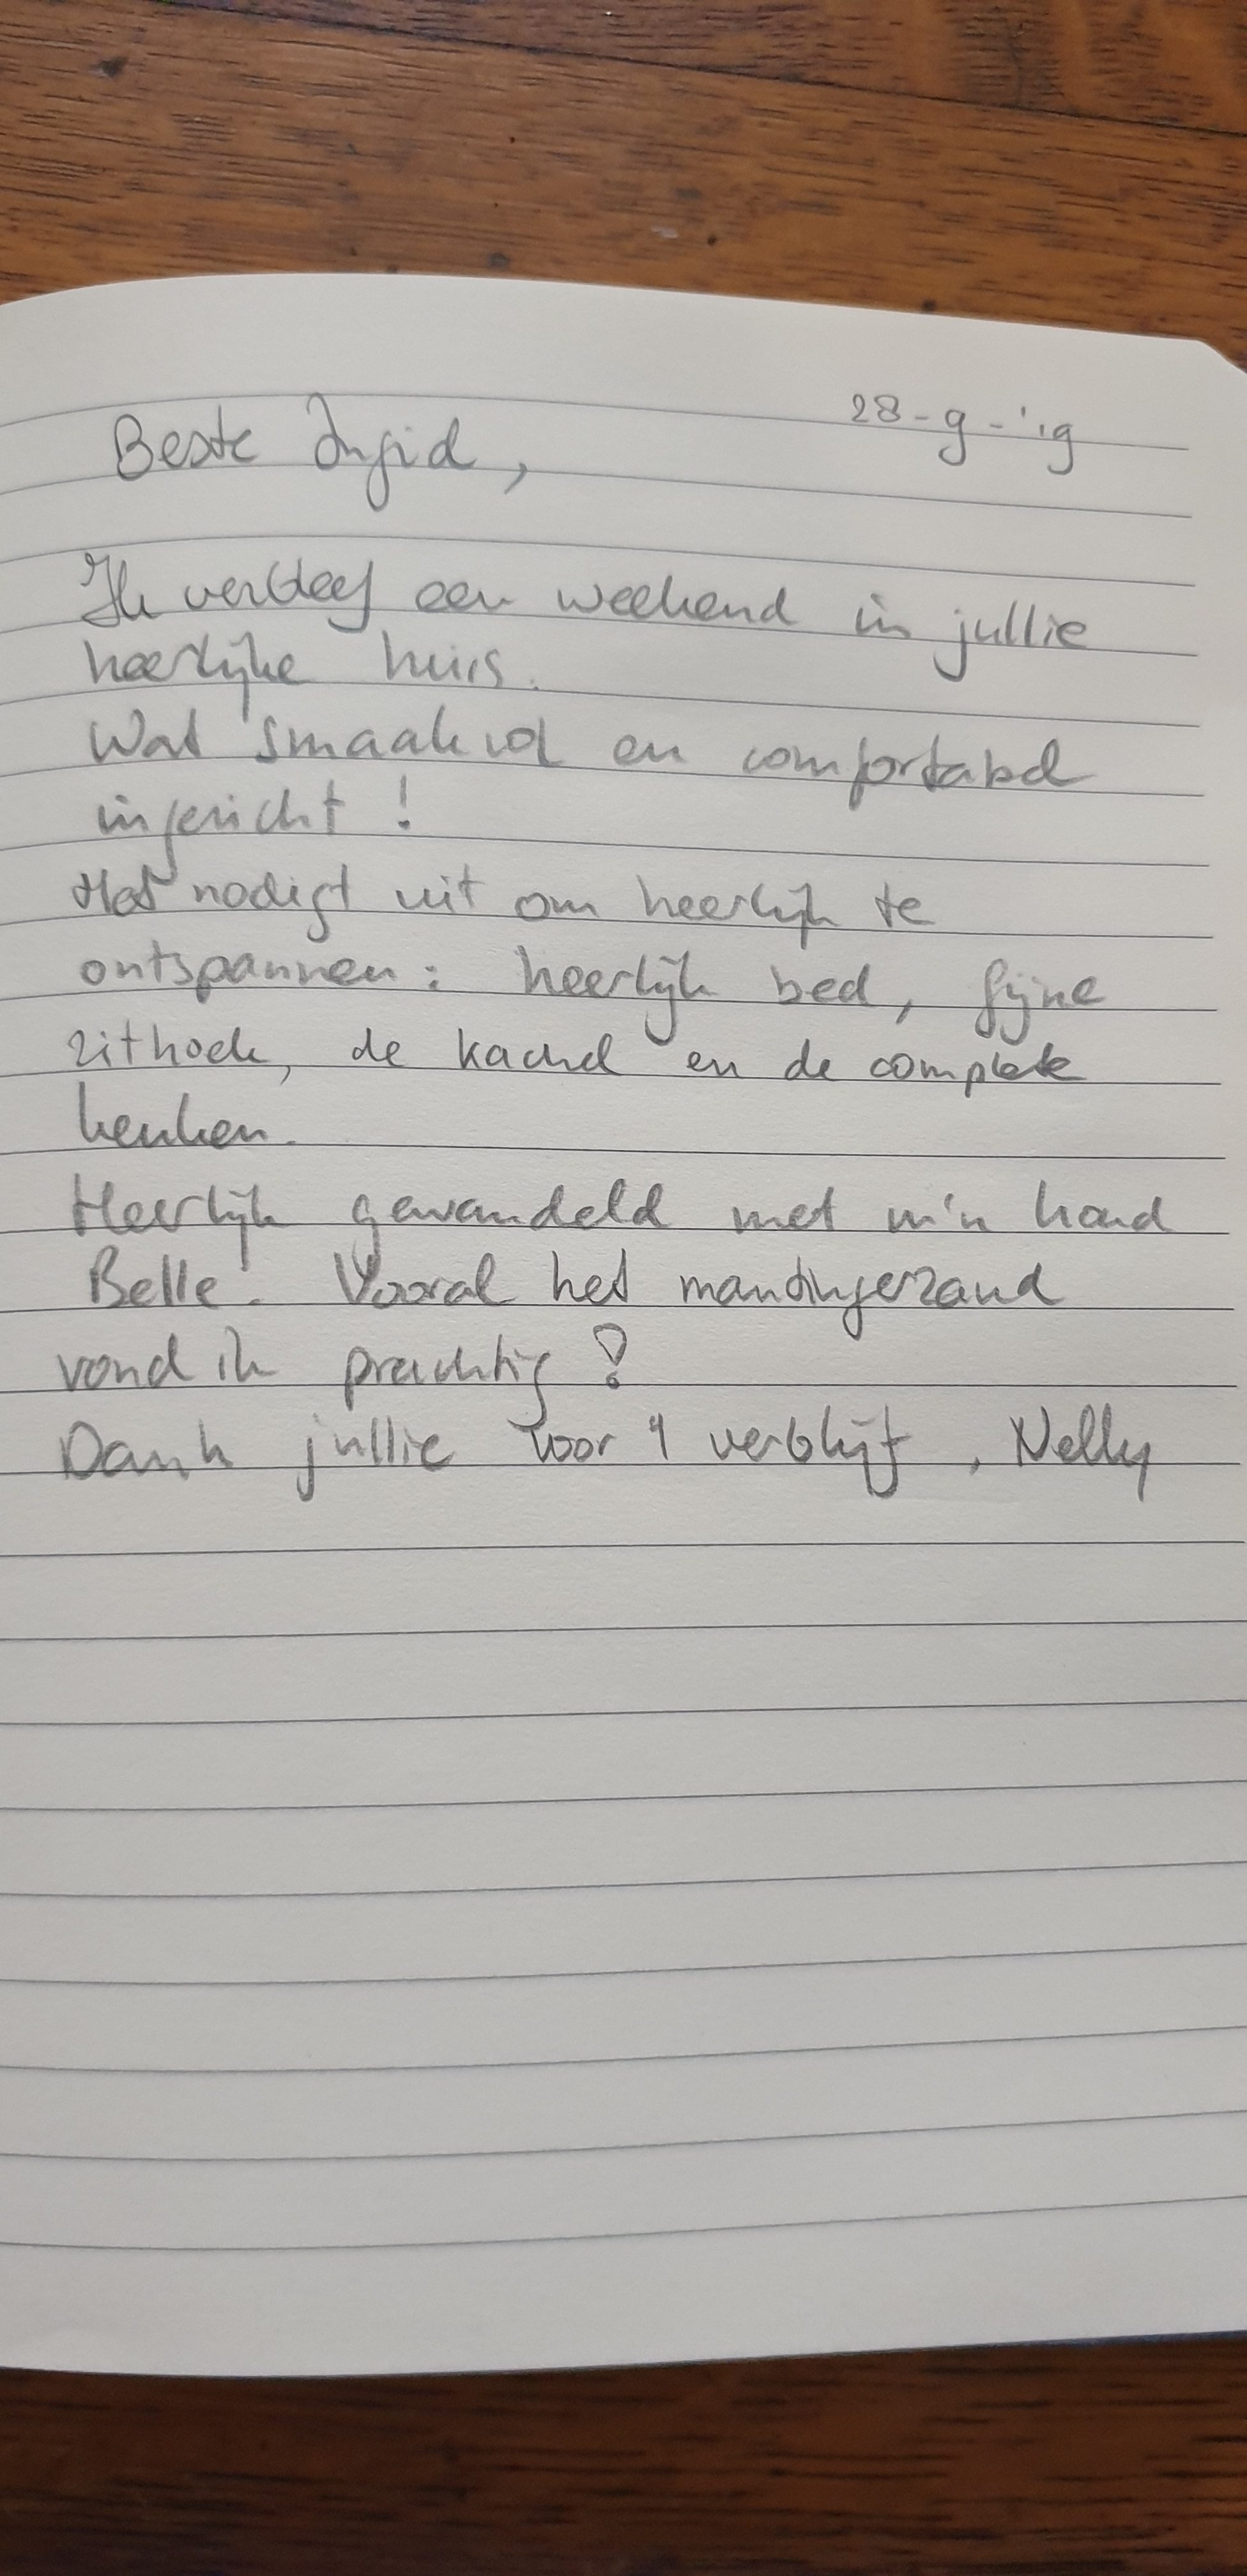 28-9-'19
Beste Ingrid,
Ik verbleef een weekend in jullie
heerlijke huis.
Wat smaakvol en comfortabel
ingericht!
Het nodigt uit om heerlijk te
ontspannen: heerlijk bed, fijne
zithoek, de kachel en de complete
keuken.
Heerlijk gewandeld met m'n hond
Belle. Vooral het mantingerzand
vond ik prachtig!
Dank jullie voor 't verblijf, Nelly